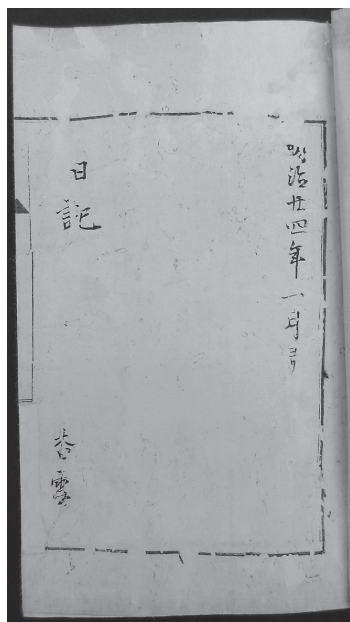 明治廿四年一月ヨリ
日記
香雲